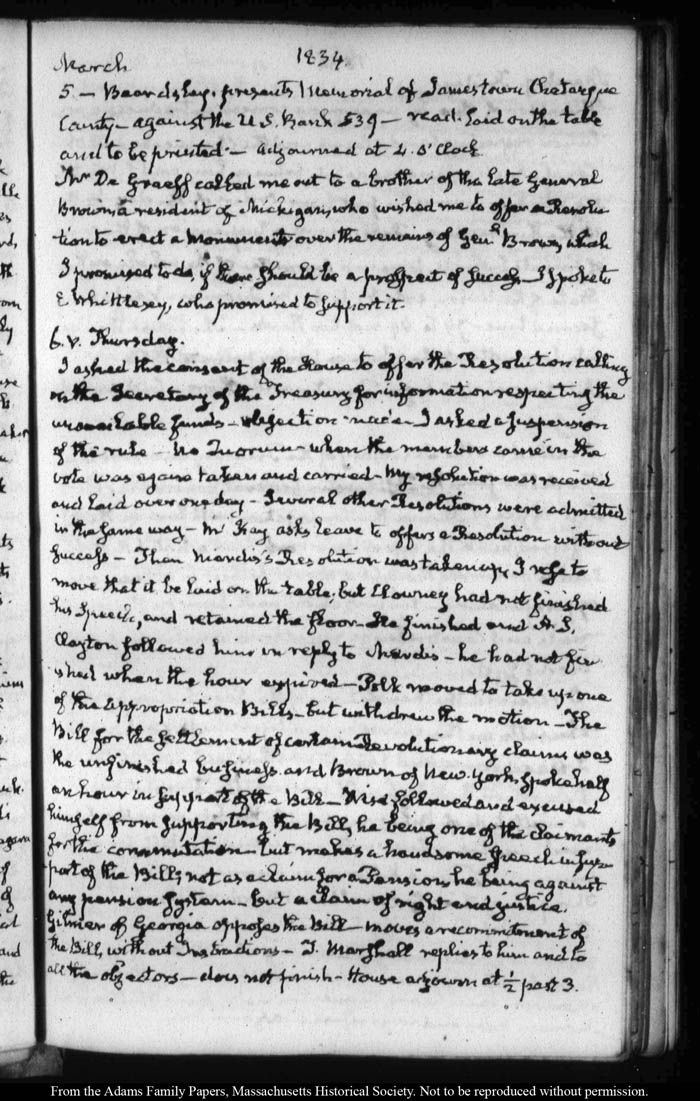 1834
March
5 — Beardsley. presents Memorial of Jamestown Chatauque
County — against the U.S. Bank 539 — read. laid on the table
and to be printed — adjourned at 4. O'Clock
Mr De Graeff called me out to a brother of the late General
Brown, a resident of Michigan, who wished me to offer a Resolu-
tion to erect a Monument over the remains of Genl Brown, which
I promised to do, if there should be a prospect of success — I spoke to
E Whittlesey, who promised to support it.
6. V. Thursday.
I asked the consent of the House to offer the Resolution calling
on the Secretary of the Treasury for information respecting the
unavailable funds — objection made — I asked a suspension
of the rule — No Quorum — when the members came in the
vote was again taken and carried — My resolution was received
and laid over one day — Several other Resolutions were admitted
in the same way — Mr Kay asks leave to offer a Resolution without
success — Then Mardis's Resolution was taken up, I rose to
move that it be laid on the table, but Clowney had not finished
his Speech, and retained the floor — He finished and A. S.
Clayton followed him in reply to Mardis — he had not fin
ished when the hour expired — Polk moved to take up one
of the appropriation Bills — but withdrew the motion — The
Bill for the settlement of certain Revolutionary claims was
the unfinished business. and Brown of New-York, spoke half
an hour in support of the Bill — Wise followed and excused
himself from supporting the Bill, he being one of the claimants
for the commutation — but makes a handsome speech in sup-
port of the Bill, not as a claim for a Pension, he being against
any pension system — but a claim of right and justice.
Gilmer of Georgia opposes the Bill — moves a recommitment of
the Bill, without Instructions — T. Marshall replies to him and to
all the objectors — does not finish — House adjourn at ½ past 3.
From the Adams Family Papers, Massachusetts Historical Society. Not to be reproduced without permission.